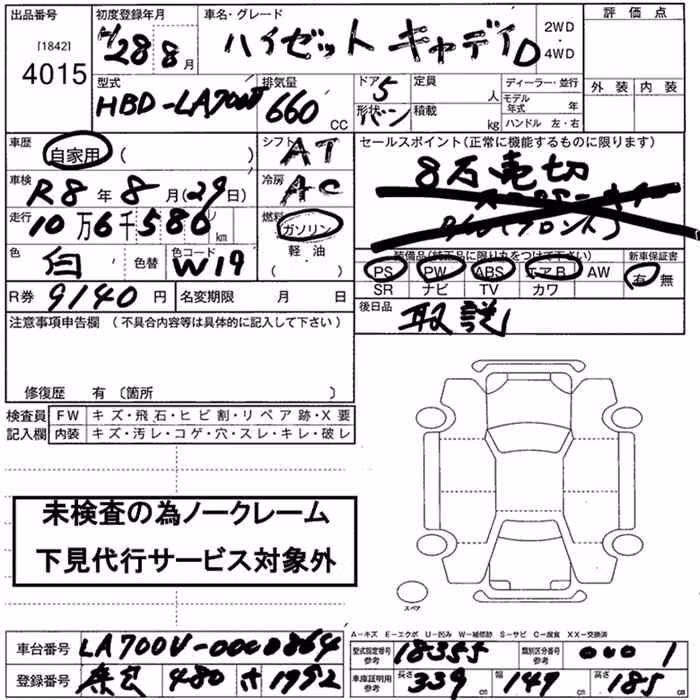 出品番号 初度登録年月 車名・グレード 評価点
[1842] 4015 H 28 8月 ハイゼット キャディD 2WD・4WD
型式 排気量 ドア 5 定員 人 ディーラー・並行 外装 内装
HBD-LA700V 660 CC 形状 バン 積載 kg モデル年式 年
ハンドル 左・右
車歴 自家用 ( ) シフト AT セールスポイント(正常に機能するものに限ります)
車検 R8年8月(29日) 冷房 AC 8万売切
走行 10万6千580km 燃料 ガソリン・軽油 (フロント)
色 白 色替 色コード W19 装備品(純正品に限り丸をつけて下さい) 新車保証書
PS PW ABS エアB AW 有 無
R券 9140円 名変期限 月 日 SR ナビ TV カワ
注意事項申告欄(不具合内容等は具体的に記入して下さい) 後日品 取説
修復歴 有〔箇所 〕
検査員 FW キズ・飛石・ヒビ割・リペア跡・X要
記入欄 内装 キズ・汚レ・コゲ・穴・スレ・キレ・破レ
未検査の為ノークレーム
下見代行サービス対象外
スペア
A-キズ E-エクボ U-凹み W-補修跡 S-サビ C-腐食 XX-交換済
車台番号 LA700V-0000864 型式指定番号 参考 18355 類別区分番号 参考 0001
登録番号 480 1992 車庫証明用 参考 長さ 339cm 幅 147cm 高さ 185cm